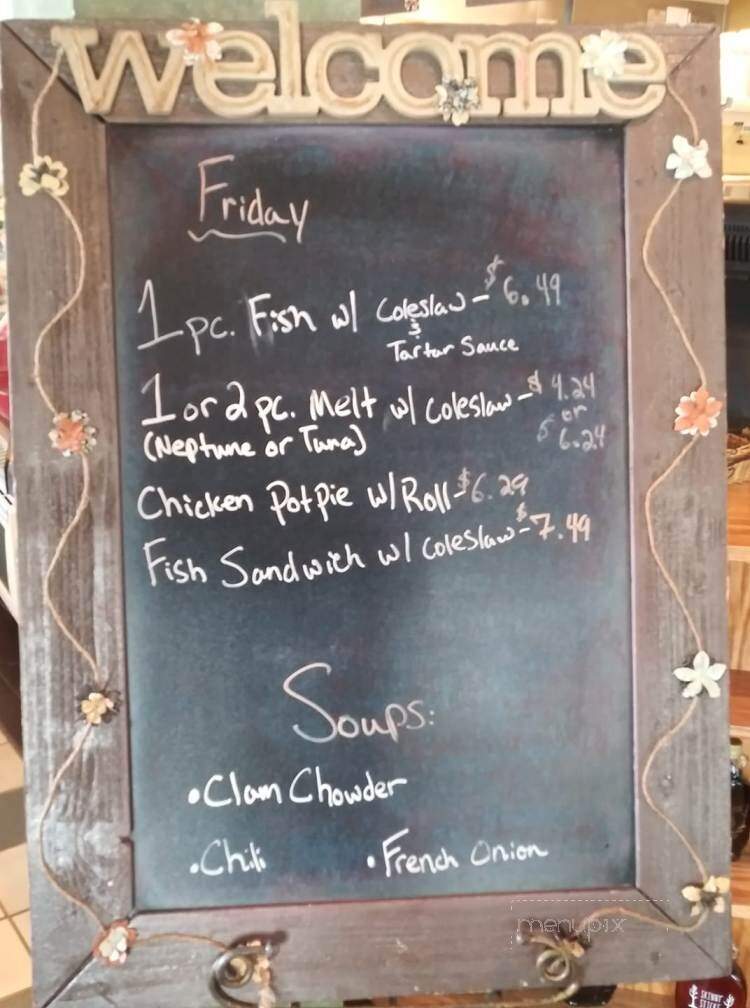 welcome
Friday
1 pc. Fish w/ Coleslaw - $6.49
&
Tartar Sauce
1 or 2 pc. Melt w/ Coleslaw - $4.24
(Neptune or Tuna) or
$6.24
Chicken Pot pie w/ Roll - $6.29
Fish Sandwich w/ Coleslaw - $7.49
Soups:
• Clam Chowder
• Chili • French Onion
menupix